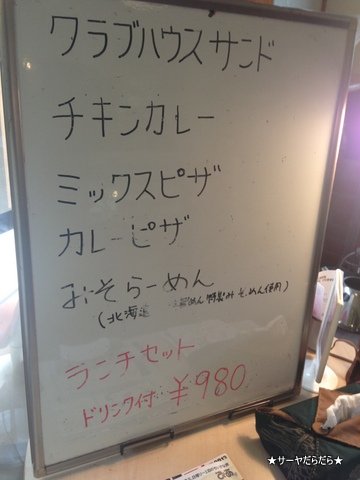 クラブハウスサンド
チキンカレー
ミックスピザ
カレーピザ
みそらーめん
(北海道 めん 特製みそ、めん使用)
ランチセット
ドリンク付 ¥980
★サーヤだらだら★